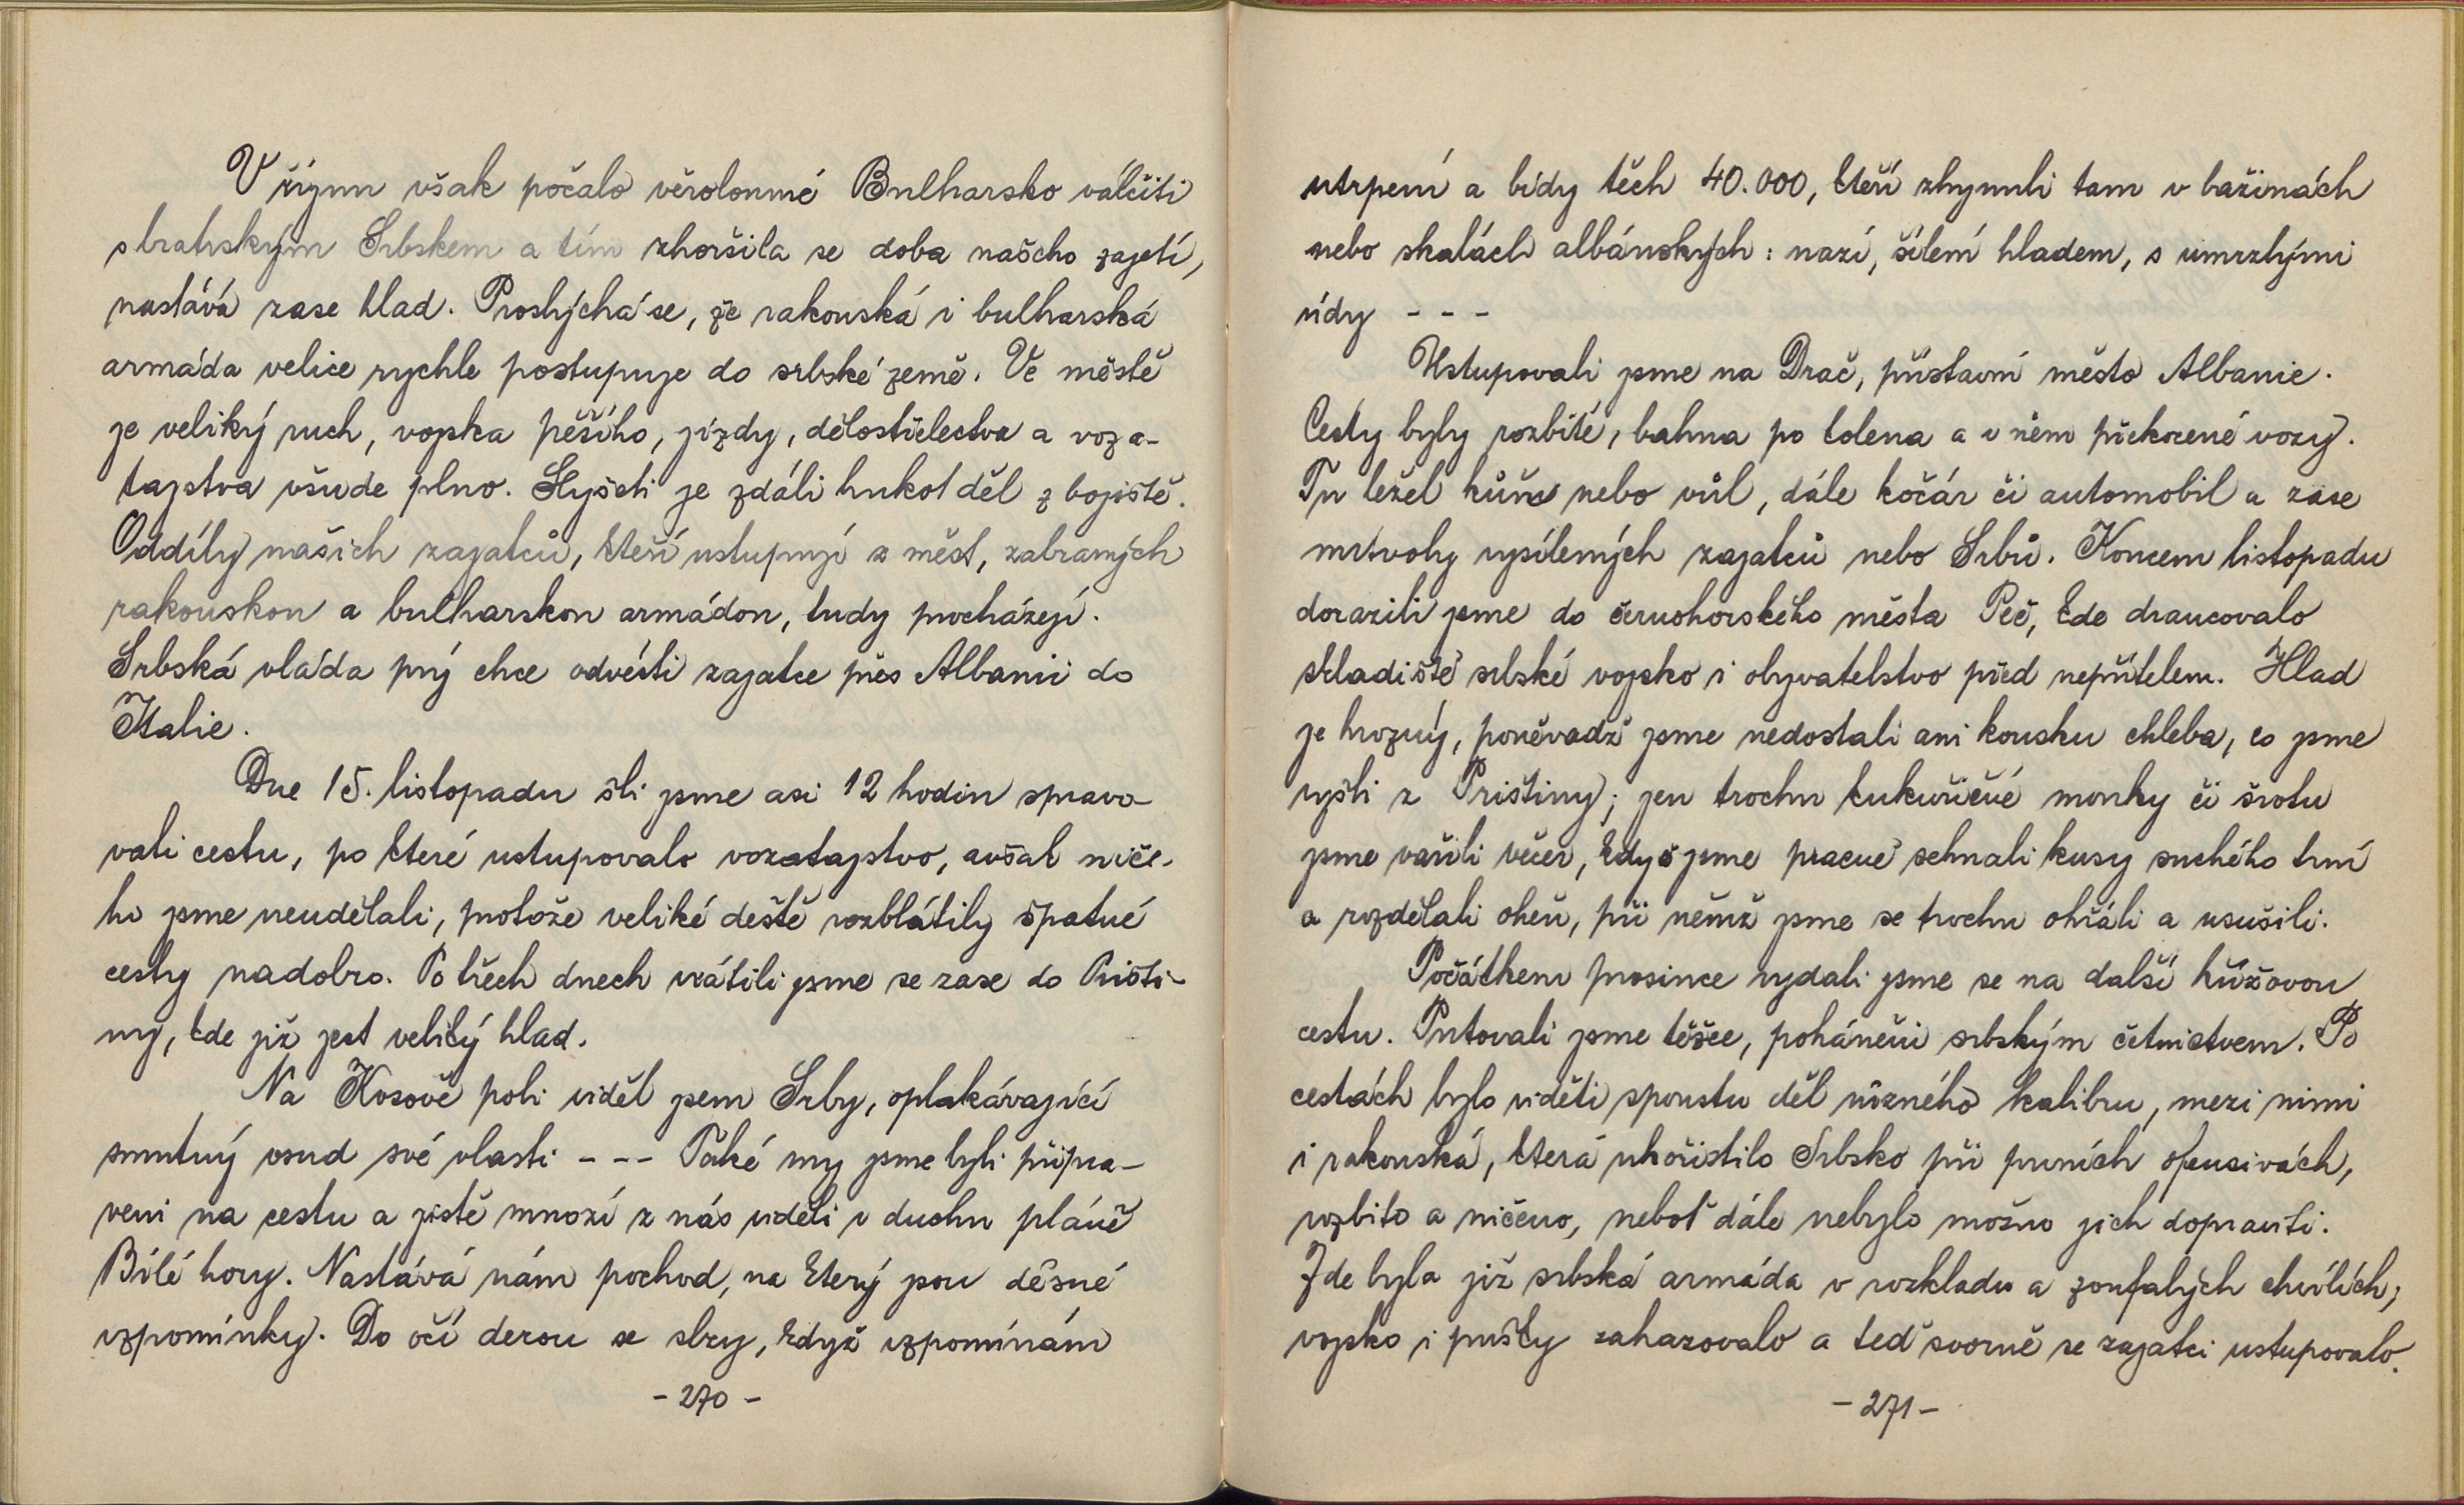 V říjnu však počalo věrolomné Bulharsko válčiti
s bratrským Srbskem a tím zhoršila se doba našeho zajetí,
nastává zase hlad. Proslýchá se, že rakouská i bulharská
armáda velice rychle postupuje do srbské země. Ve městě
je veliký ruch, vojska pěšího, jízdy, dělostřelectva a voza-
tajstva všude plno. Slyšeti je zdáli hukot děl z bojiště.
Oddíly našich zajatců, kteří ustupují z měst, zabraných
rakouskou a bulharskou armádou, tudy procházejí.
Srbská vláda prý chce odvésti zajatce přes Albanii do
Italie.
Dne 15. listopadu šli jsme asi 12 hodin spravo-
vali cestu, po které ustupovalo vozatajstvo, avšak niče-
ho jsme neudělali, protože veliké deště rozblátily špatné
cesty nadobro. Po třech dnech vrátili jsme se zase do Prišti-
ny, kde již jest veliký hlad.
Na Kosově poli viděl jsem Srby, oplakávající
smutný osud své vlasti - - - Také my jsme byli připra-
veni na cestu a jistě mnozí z nás viděli v duchu pláně
Bílé hory. Nastává nám pochod, na který jsou děsné
vzpomínky. Do očí derou se slzy, když vzpomínám
- 270 -
utrpení a bídy těch 40.000, kteří zhynuli tam v bažinách
nebo skalách albánských: nazí, šílení hladem, s umrzlými
údy - - -
Ustupovali jsme na Drač, přístavní město Albanie.
Cesty byly rozbité, bahna po kolena a v něm překocené vozy.
Tu ležel kůň nebo vůl, dále kočár či automobil a zase
mrtvoly vysílených zajatců nebo Srbů. Koncem listopadu
dorazili jsme do černohorského města Peč, kde drancovalo
skladiště srbské vojsko i obyvatelstvo před nepřítelem. Hlad
je hrozný, poněvadž jsme nedostali ani kousku chleba, co jsme
vyšli z Prištiny; jen trochu kukuřičné mouky či šrotu
jsme vařili večer, když jsme pracně sehnali kusy suchého trní
a rozdělali oheň, při němž jsme se trochu ohřáli a usušili.
Počátkem prosince vydali jsme se na další křížovou
cestu. Putovali jsme těžce, poháněni srbským četnictvem. Po
cestách bylo viděti spoustu děl různého kalibru, mezi nimi
i rakouská, která ukořistilo Srbsko při prvních ofensivách,
rozbito a ničeno, neboť dále nebylo možno jich dopraviti.
Zde byla již srbská armáda v rozkladu a zoufalých chvílích;
vojsko i pušky zahazovalo a teď svorně se zajatci ustupovalo.
- 271 -